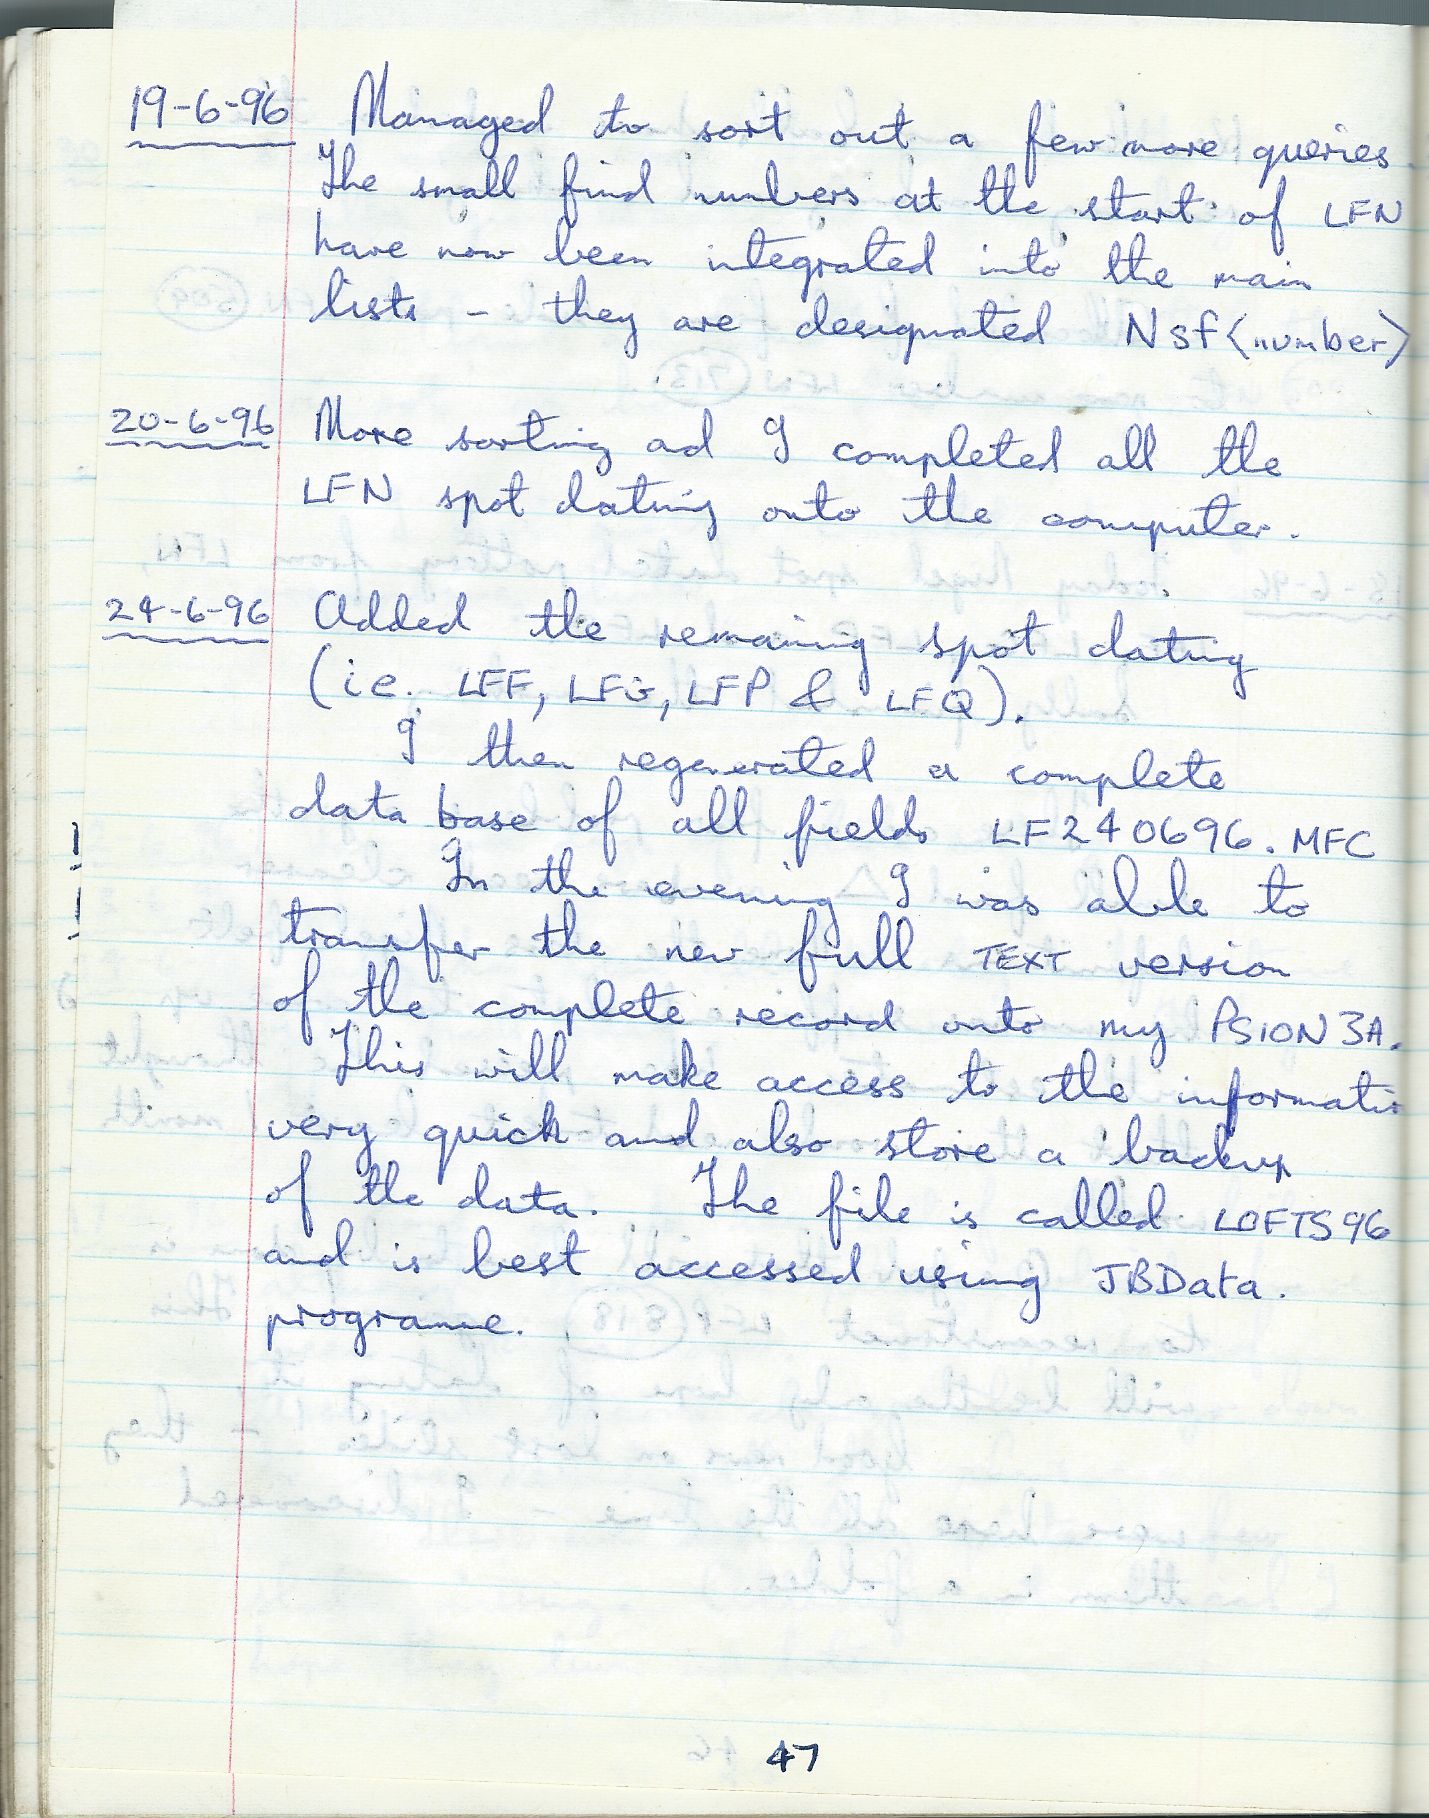 19-6-96 Managed to sort out a few more queries
The small find numbers at the start of LFN
have now been integrated into the main
lists - they are designated Nsf<number>
20-6-96 More sorting ad I completed all the
LFN spot dating onto the computer.
24-6-96 Added the remaining spot dating
(ie. LFF, LFG, LFP & LFQ).
I then regenerated a complete
data base of all fields LF240696.MFC
In the evening I was able to
transfer the new full TEXT version
of the complete record onto my PSION 3A.
This will make access to the informatio
very quick and also store a backup
of the data. The file is called LOFTS96
and is best accessed using JBData.
programme.
47